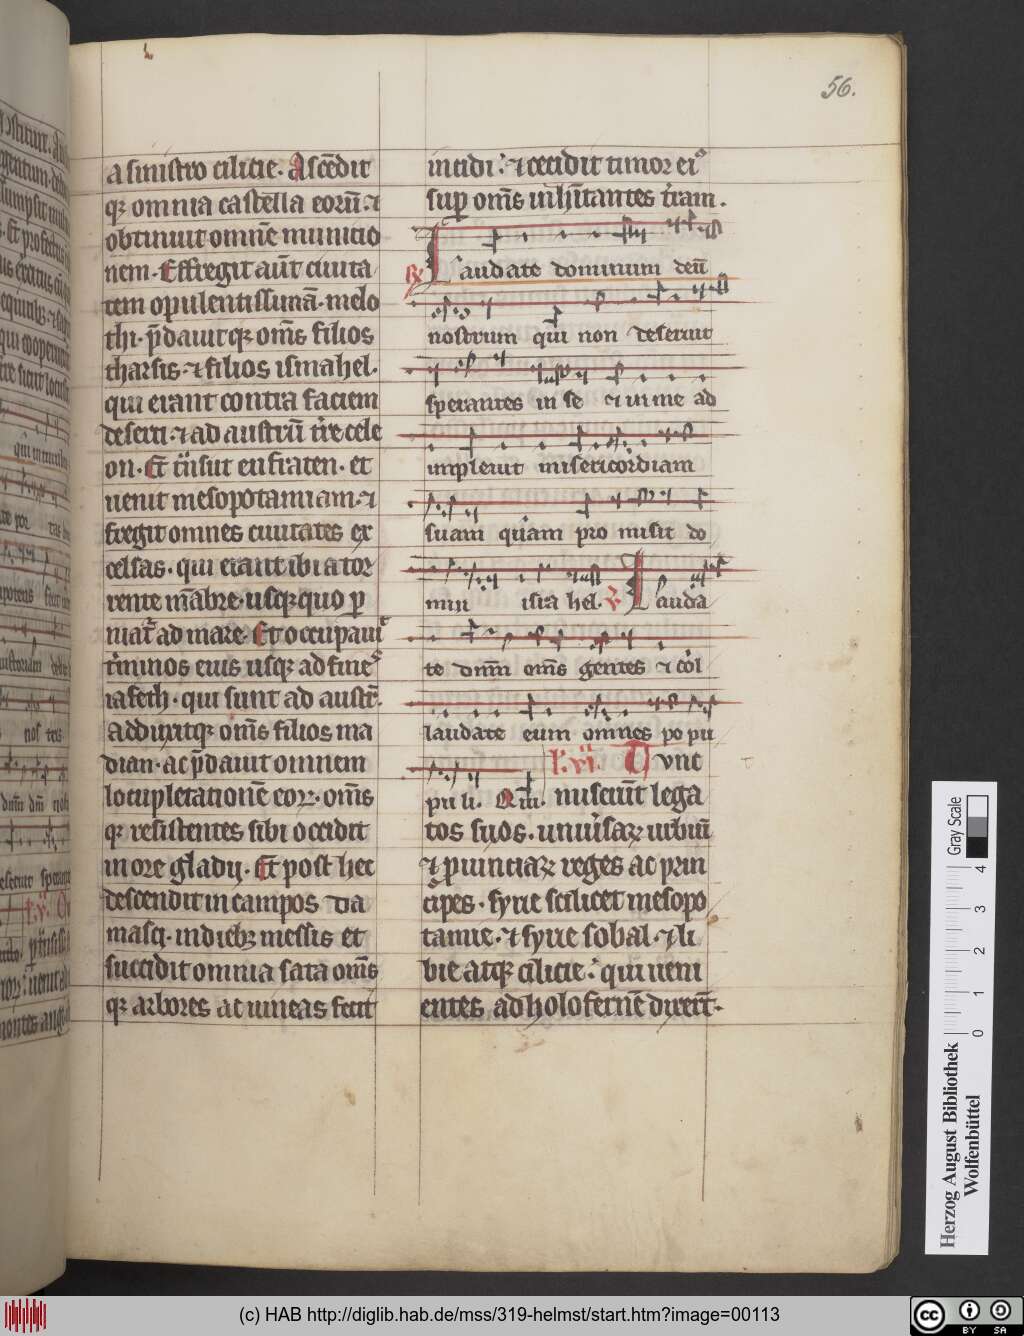 56.
a sinistro cilicie. Ascēdit
qꝫ omnia castella eorū ⁊
obtinuit omnē munitio
nem. Effregit aūt ciuita
tem opulentissimā. melo
thi. p̄dauitqꝫ om̄s filios
tharsis. ⁊ filios ismahel.
qui erant contra faciem
deserti ⁊ ad austrū t̄re cele
on. Et t̄nsiit eufraten. et
uenit mesopotamiam. ⁊
fregit omnes ciuitates ex
celsas. qui erant ibi a tor
rente mābre. usqꝫ quo ꝑ
niat᷑ ad mare. Et occupauit
t̄minos eius usqꝫ ad fines
iafeth. qui sunt ad austr̄.
Adduxitqꝫ om̄s filios ma
dian. ac p̄dauit omnem
locupletationē eoꝝ. om̄s
qꝫ resistentes sibi occidit
in ore gladij. Et post hec
descendit in campos da
masci. in diebꝫ messis et
succidit omnia sata om̄s
qꝫ arbores ac uineas fecit
incidi. ⁊ cecidit timor eiꝰ
suꝑ om̄s inhītantes t̄ram.
℟ Laudate dominum deū
nostrum qui non deseruit
sperantes in se et in me ad
impleuit misericordiam
suam quam pro misit do
mui isra hel. ℣ Lauda
te dnm̄ om̄s gentes ⁊ col
laudate eum omnes po pu
pu li. Q̄m. l. vi. Tunc
miserūt lega
tos suos. uniuersaꝝ urbiū
⁊ prouinciaꝝ reges ac prin
cipes. syrie scilicet mesopo
tamie. ⁊ syrie sobal. ⁊ li
bie atqꝫ cilicie. qui ueni
entes ad holofernē dixert̄.
Gray Scale
4 3 2 1 0
Herzog August Bibliothek
Wolfenbüttel
(c) HAB http://diglib.hab.de/mss/319-helmst/start.htm?image=00113
cc BY SA